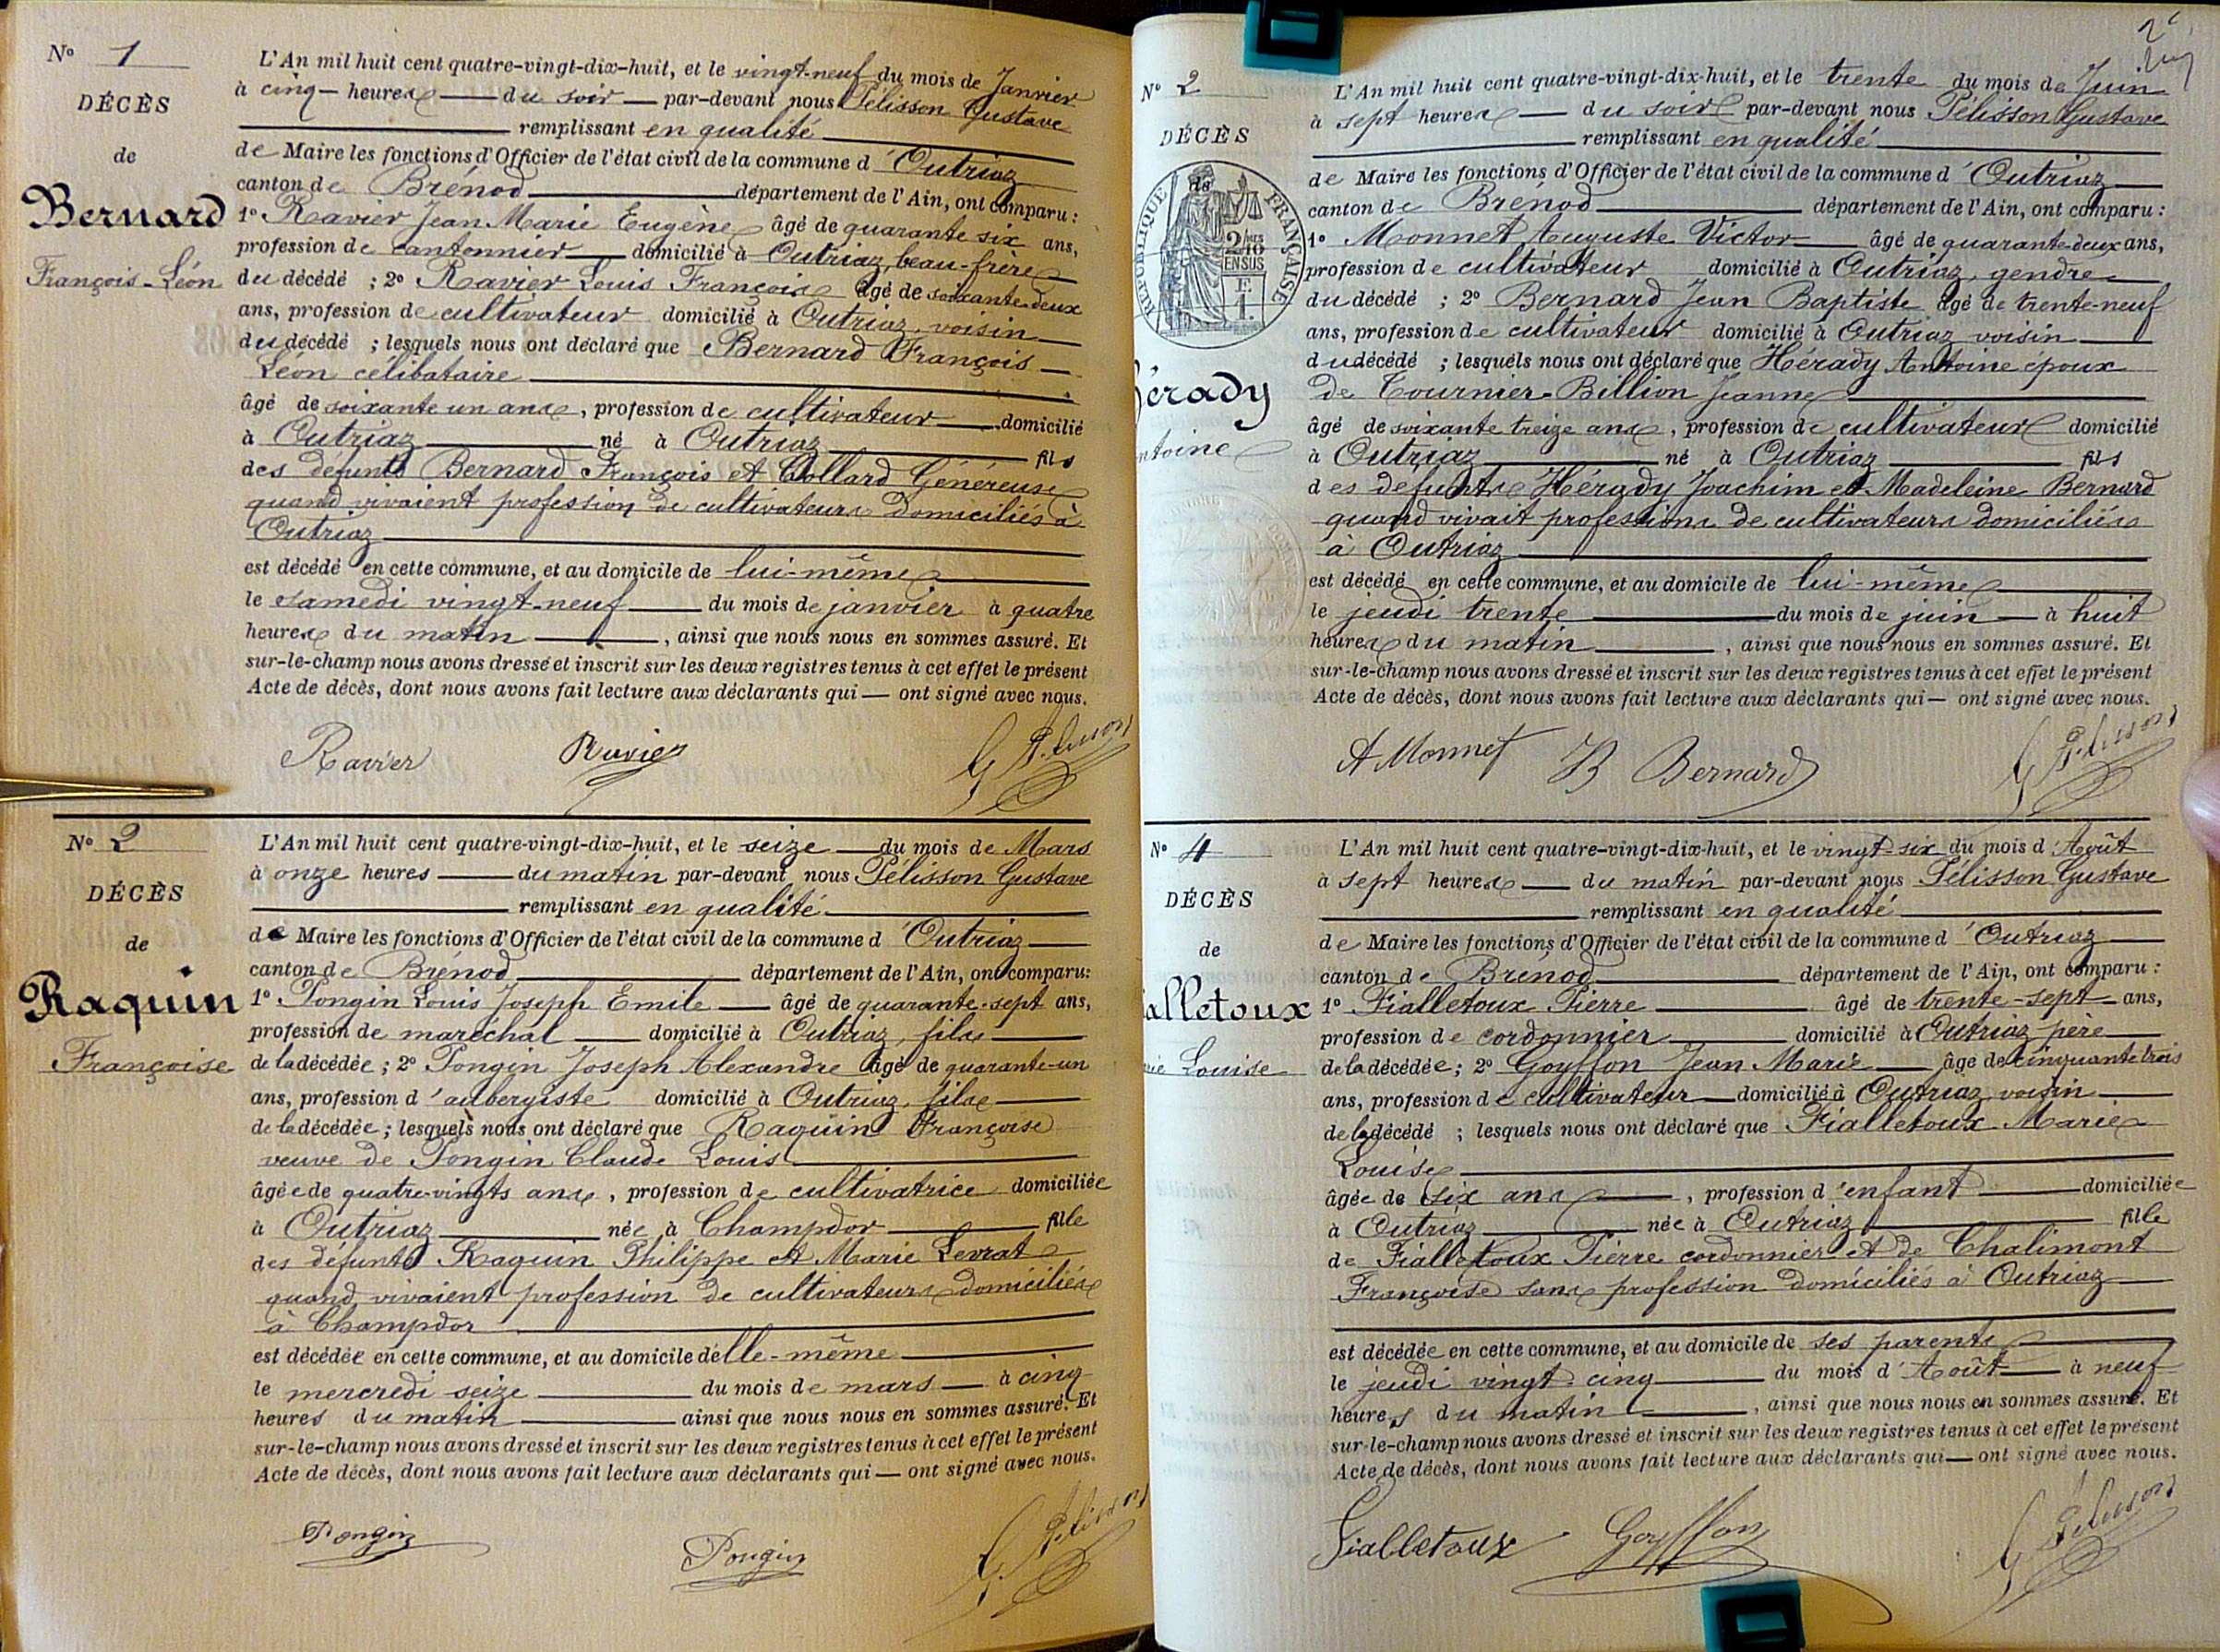 N° 1
DÉCÈS
de
Bernard
François-Léon
L'An mil huit cent quatre-vingt-dix-huit, et le vingt-neuf du mois de Janvier
à cinq heures du soir par-devant nous Pélisson Gustave
remplissant en qualité
de Maire les fonctions d'Officier de l'état civil de la commune d'Outriaz
canton de Brénod département de l'Ain, ont comparu :
1° Ravier Jean Marie Eugène âgé de quarante six ans,
profession de cantonnier domicilié à Outriaz, beau-frère
du décédé ; 2° Ravier Louis François âgé de soixante-deux
ans, profession de cultivateur domicilié à Outriaz, voisin
du décédé ; lesquels nous ont déclaré que Bernard François
Léon célibataire
âgé de soixante un ans, profession de cultivateur domicilié
à Outriaz né à Outriaz fils
des défunts Bernard François et Collard Généreuse
quand vivaient profession de cultivateurs domiciliés à
Outriaz
est décédé en cette commune, et au domicile de lui-même
le samedi vingt-neuf du mois de janvier à quatre
heures du matin, ainsi que nous nous en sommes assuré. Et
sur-le-champ nous avons dressé et inscrit sur les deux registres tenus à cet effet le présent
Acte de décès, dont nous avons fait lecture aux déclarants qui — ont signé avec nous.
Ravier Ravier G. Pelisson
N° 2
DÉCÈS
de
Raquin
Françoise
L'An mil huit cent quatre-vingt-dix-huit, et le seize du mois de Mars
à onze heures du matin par-devant nous Pélisson Gustave
remplissant en qualité
de Maire les fonctions d'Officier de l'état civil de la commune d'Outriaz
canton de Brénod département de l'Ain, ont comparu:
1° Pongin Louis Joseph Emile âgé de quarante-sept ans,
profession de maréchal domicilié à Outriaz, fils
de la décédée ; 2° Pongin Joseph Alexandre âgé de quarante-un
ans, profession d'aubergiste domicilié à Outriaz, fils
de la décédée ; lesquels nous ont déclaré que Raquin Françoise
veuve de Pongin Claude Louis
âgée de quatre-vingts ans, profession de cultivatrice domiciliée
à Outriaz née à Champdor fille
des défunts Raquin Philippe et Marie Levrat
quand vivaient profession de cultivateurs domiciliés
à Champdor
est décédée en cette commune, et au domicile d'elle-même
le mercredi seize du mois de mars à cinq
heures du matin ainsi que nous nous en sommes assuré. Et
sur-le-champ nous avons dressé et inscrit sur les deux registres tenus à cet effet le présent
Acte de décès, dont nous avons fait lecture aux déclarants qui — ont signé avec nous.
Pongin Pongin G. Pelisson
N° 2
DÉCÈS
de
RÉPUBLIQUE FRANÇAISE
érady
ntoine
L'An mil huit cent quatre-vingt-dix-huit, et le trente du mois de Juin
à sept heures du soir par-devant nous Pélisson Gustave
remplissant en qualité
de Maire les fonctions d'Officier de l'état civil de la commune d'Outriaz
canton de Brénod département de l'Ain, ont comparu :
1° Monnet Auguste Victor âgé de quarante-deux ans,
profession de cultivateur domicilié à Outriaz, gendre
du décédé ; 2° Bernard Jean Baptiste âgé de trente-neuf
ans, profession de cultivateur domicilié à Outriaz voisin
du décédé ; lesquels nous ont déclaré que Hérady Antoine époux
de Tournier-Billion Jeanne
âgé de soixante treize ans, profession de cultivateur domicilié
à Outriaz né à Outriaz fils
des défunts Hérady Joachim et Madeleine Bernard
quand vivait professions de cultivateurs domiciliés
à Outriaz
est décédé en cette commune, et au domicile de lui-même
le jeudi trente du mois de juin à huit
heures du matin, ainsi que nous nous en sommes assuré. Et
sur-le-champ nous avons dressé et inscrit sur les deux registres tenus à cet effet le présent
Acte de décès, dont nous avons fait lecture aux déclarants qui — ont signé avec nous.
A Monnet JB Bernard G. Pelisson
N° 4
DÉCÈS
de
alletoux
rie Louise
L'An mil huit cent quatre-vingt-dix-huit, et le vingt-six du mois d'Août
à sept heures du matin par-devant nous Pélisson Gustave
remplissant en qualité
de Maire les fonctions d'Officier de l'état civil de la commune d'Outriaz
canton de Brénod département de l'Ain, ont comparu :
1° Fialletoux Pierre âgé de trente-sept ans,
profession de cordonnier domicilié à Outriaz père
de la décédée ; 2° Goyffon Jean Marie âgé de cinquante trois
ans, profession de cultivateur domicilié à Outriaz voisin
de la décédé ; lesquels nous ont déclaré que Fialletoux Marie
Louise
âgée de six ans, profession d'enfant domiciliée
à Outriaz née à Outriaz fille
de Fialletoux Pierre cordonnier et de Chalimont
Françoise sans profession domiciliés à Outriaz
est décédée en cette commune, et au domicile de ses parents
le jeudi vingt-cinq du mois d'Août à neuf
heures du matin, ainsi que nous nous en sommes assuré. Et
sur-le-champ nous avons dressé et inscrit sur les deux registres tenus à cet effet le présent
Acte de décès, dont nous avons fait lecture aux déclarants qui — ont signé avec nous.
Fialletoux Goyffon G. Pelisson